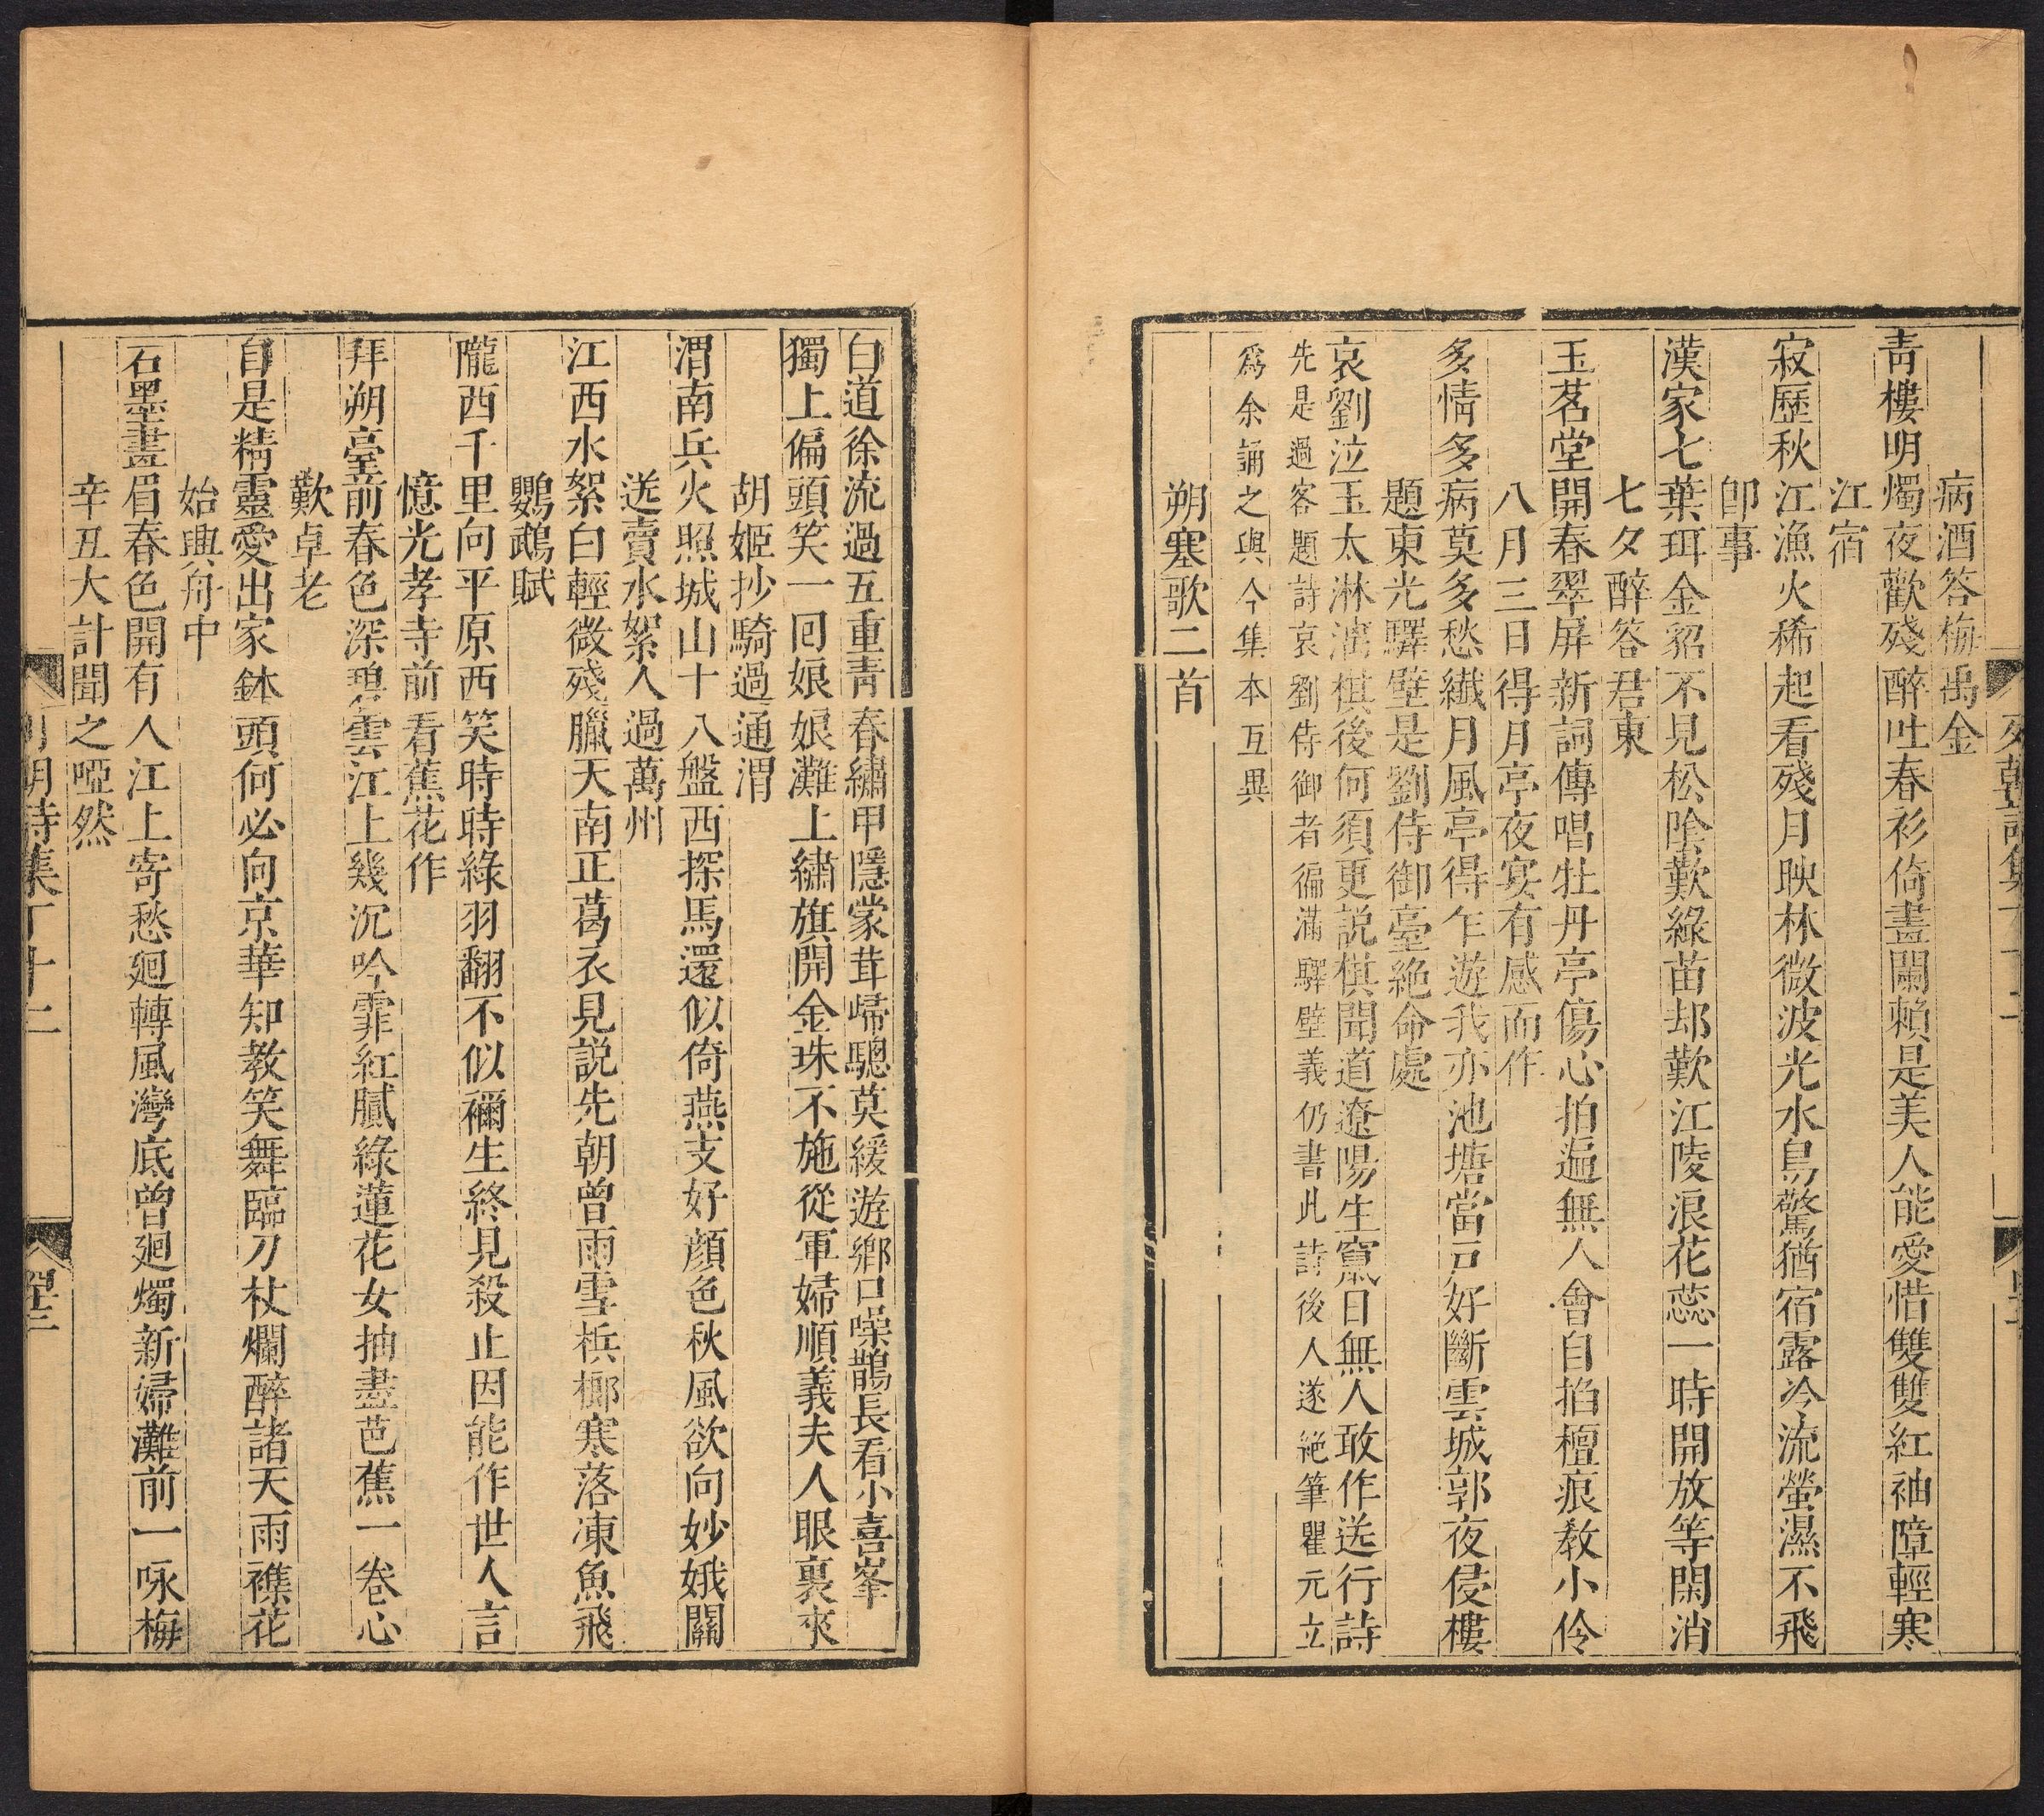 病酒答梅禹金
青樓明燭夜歡殘醉吐春衫倚畫闌賴是美人能愛惜雙雙紅袖障輕寒
江宿
寂歷秋江漁火稀起看殘月映林微波光水鳥驚猶宿露冷流螢濕不飛
卽事
漢家七葉珥金貂不見松陰歎綠苗却歎江陵浪花蕊一時開放等閑消
七夕醉答君東
玉茗堂開春翠屏新詞傳唱牡丹亭傷心拍遍無人會自掐檀痕敎小伶
八月三日得月亭夜宴有感而作
多情多病莫多愁纖月風亭得乍遊我亦池塘當戸好斷雲城郭夜侵樓
題東光驛壁是劉侍御臺絶命處
哀劉泣玉太淋漓棋後何須更説棋聞道遼陽生竄日無人敢作送行詩
先是過客題詩哀劉侍御者徧滿驛壁義仍書此詩後人遂絶筆瞿元立
爲余誦之與今集本互異
朔塞歌二首
白道徐流過五重靑春繡甲隱蒙茸歸驄莫緩遊鄉口噪鵲長看小喜峯
獨上偏頭笑一回娘娘灘上繡旗開金珠不施從軍婦順義夫人眼裏來
胡姬抄騎過通渭
渭南兵火照城山十八盤西探馬還似倚燕支好顔色秋風欲向妙娥關
送賣水絮人過萬州
江西水絮白輕微殘臘天南正葛衣見説先朝曾雨雪梹榔寒落凍魚飛
鸚鵡賦
隴西千里向平原西笑時時綠羽翻不似禰生終見殺止因能作世人言
憶光孝寺前看蕉花作
拜朔臺前春色深碧雲江上幾沉吟霏紅膩綠蓮花女抽盡芭蕉一卷心
歎卓老
自是精靈愛出家鉢頭何必向京華知敎笑舞臨刀杖爛醉諸天雨襍花
始興舟中
石墨畫眉春色開有人江上寄愁廻轉風灣底曾廻燭新婦灘前一咏梅
辛丑大計聞之啞然
列朝詩集丁十二